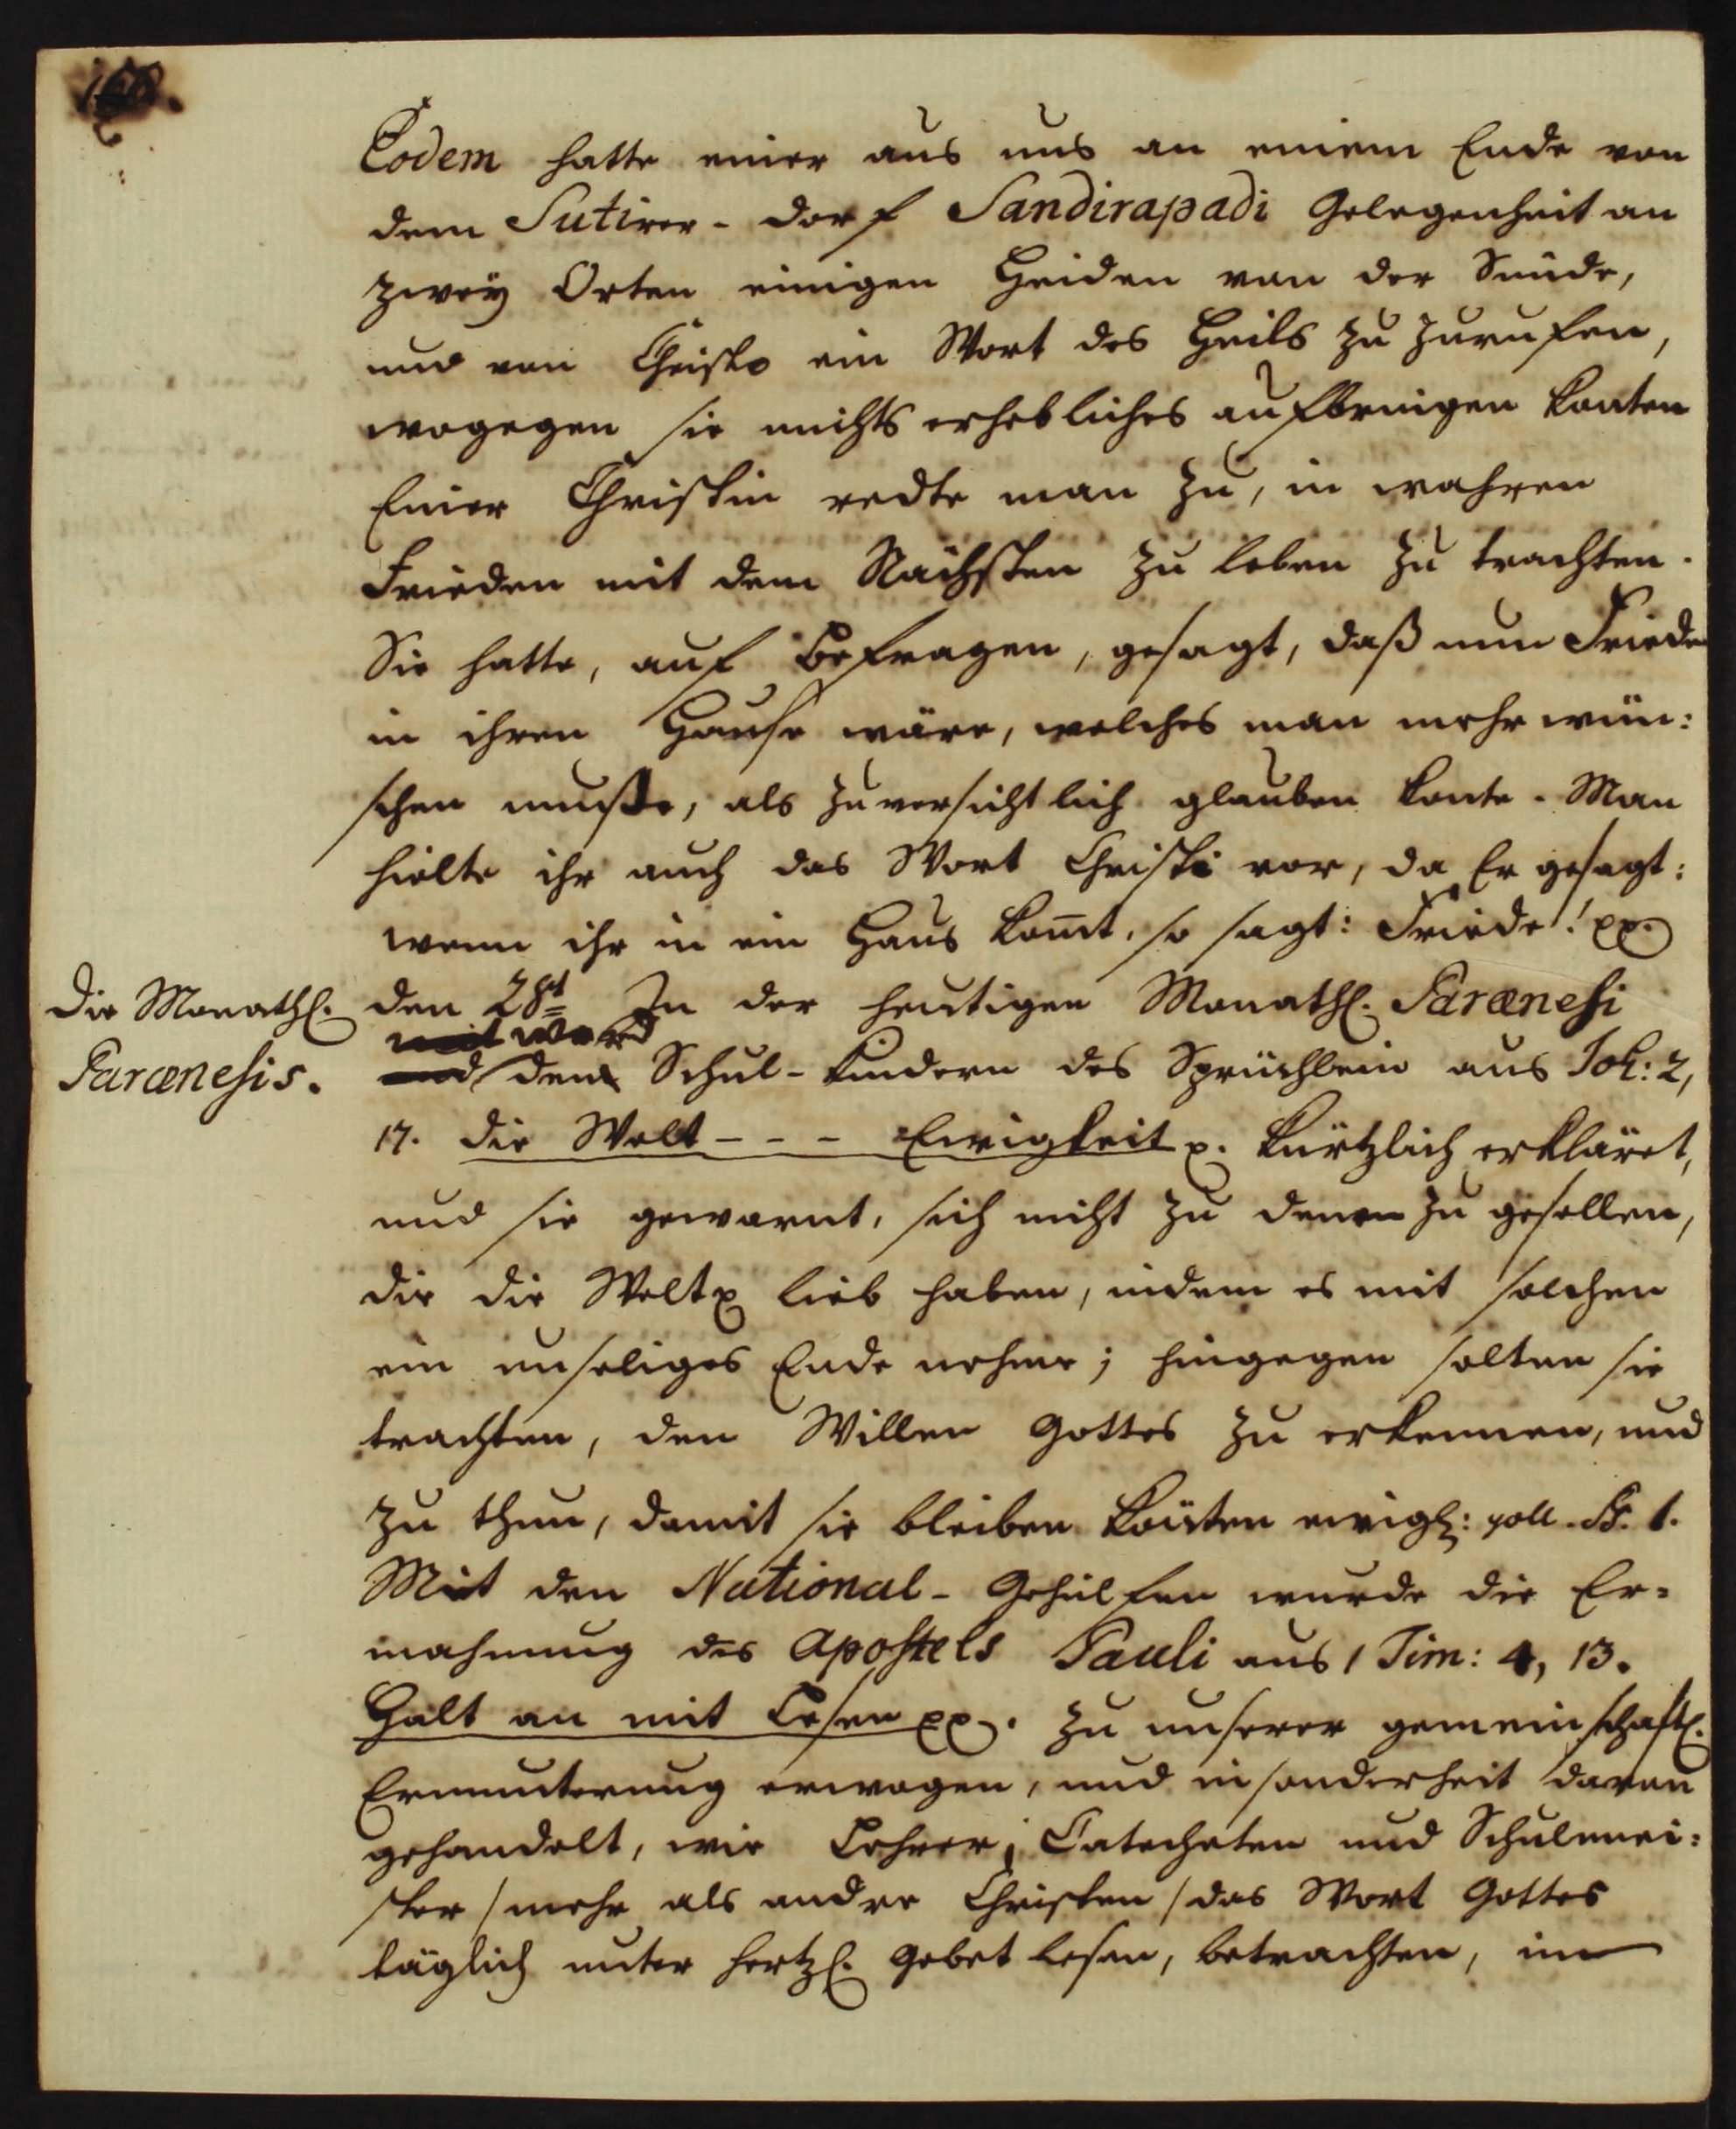 Eodem hatte einer aus uns an einem Ende von
dem Sutirer-dorf Sandirapadi Gelegenheit an
zwey Orten einigen Heiden von der Sünde,
und von Christo ein Wort des Heils zu zurufen,
wogegen sie nichts erhebliches aufbringen konten
Einer Christin redte man zu, in wahren
Frieden mit dem Nächsten zu leben zu trachten.
Sie hatte, auf Befragen, gesagt, daß nun Frieden
in ihren Hause wäre, welches man mehr wün:
schen muste, als zuversichtlich glauben konte. Man
hielte ihr auch das Wort Christi vor, da Er gesagt:
wenn ihr in ein Haus komt, so sagt: Friede! pp.
Die Monathl.
Parænesis.
den 28t In der heutigen Monathl. Parænesi
ward
den Schul-Kindern des Sprüchlein aus Joh: 2,
17. die Welt - - - Ewigkeit p. kürtzlich erkläret,
und sie gewarnt, sich nicht zu denen zu gesellen,
die die Welt p lieb haben, indem es mit solchen
ein unseliges Ende nehme; hingegen solten sie
trachten, den Willen Gottes zu erkennen, und
zu thun, damit sie bleiben könten ewigl: coll. Ps. 1.
Mit den National-Gehülfen wurde die Er-
mahnung des Apostels Pauli aus 1 Tim: 4, 13.
Halt an mit Lesen pp. zu unserer gemeinschaftl.
Ermunterung erwogen, und insonderheit davon
gehandelt, wie Lehrer, Catecheten und Schulmei:
ster / mehr als andre Christen / das Wort Gottes
täglich unter hertzl. Gebet lesen, betrachten, im